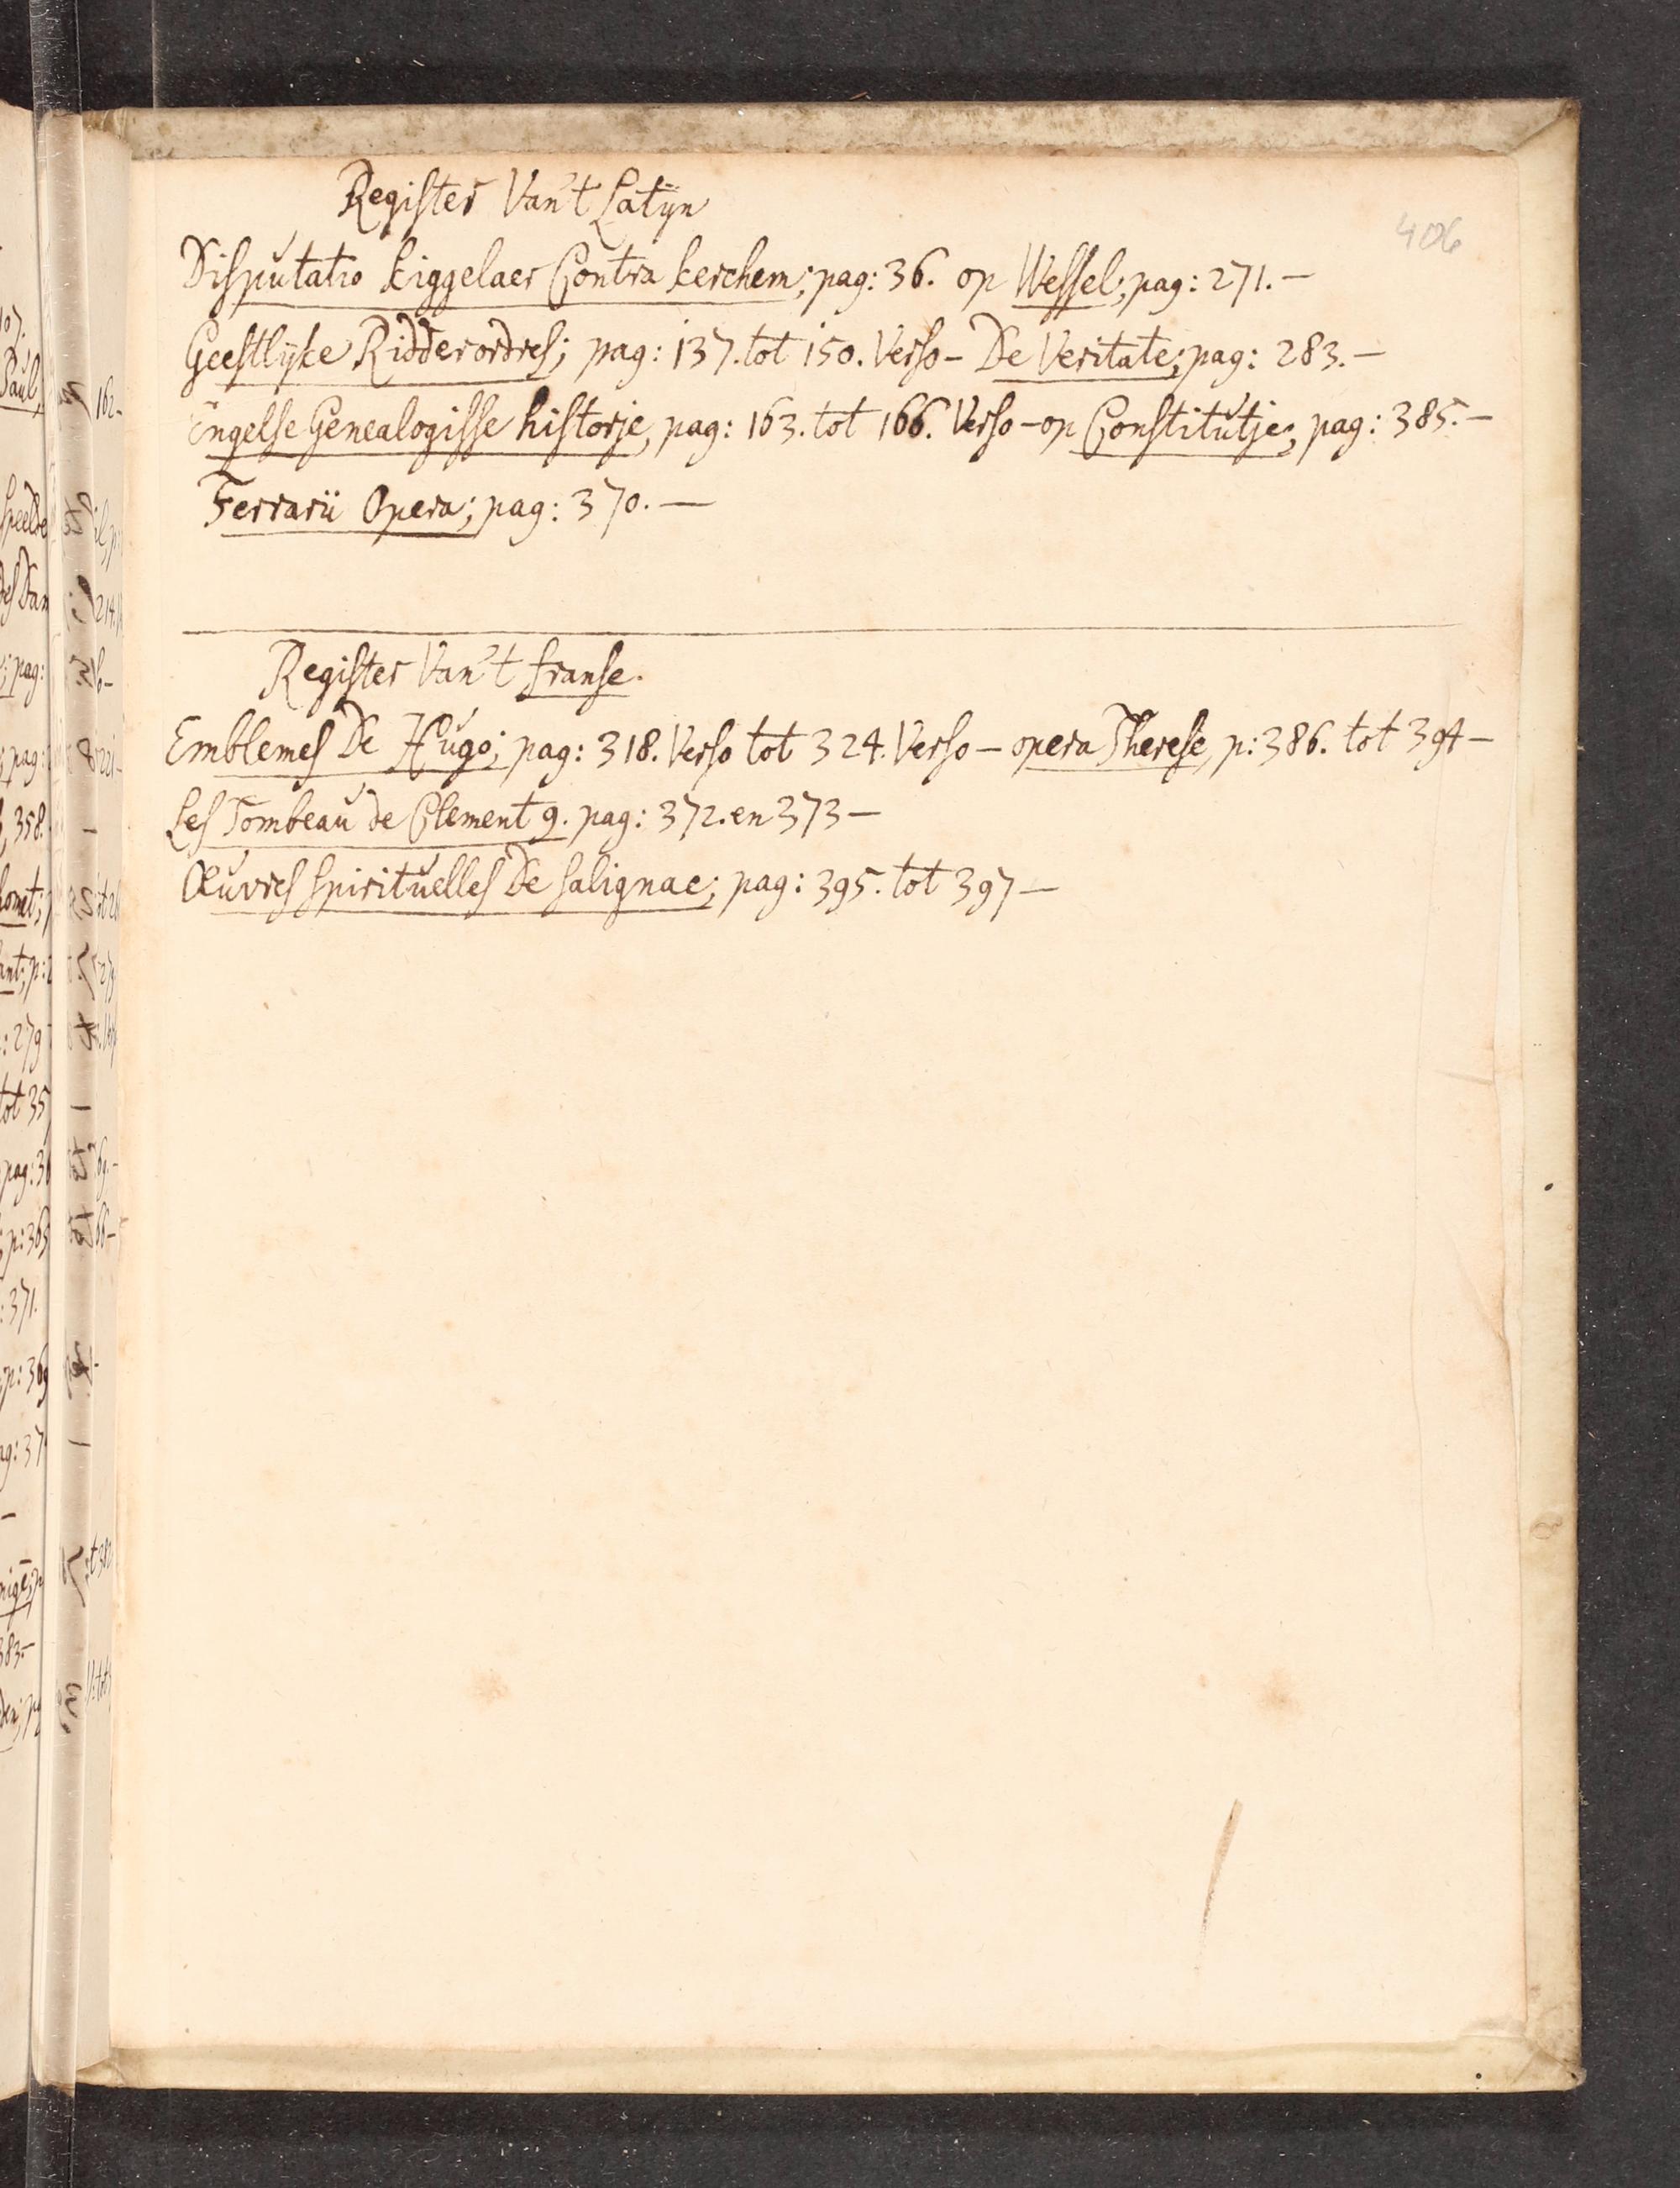 Register Van't Latÿn
406
Disputatio kiggelaer Contra kerchem; pag: 36. op Wessel; pag: 271. —
Geestlÿke Ridderordres; pag: 137. tot 150. Verso - De Veritate; pag: 283. —
Engelse Genealogisse historje, pag: 163. tot 166. Verso - op Constitutje; pag: 385. —
Ferrarii Opera; pag: 370. —
Register Van't franse.
Emblemes De Hugo; pag: 318. Verso tot 324. Verso — opera Therese, p: 386. tot 394 —
Les Tombeau de Clement 9. pag: 372. en 373 —
Œuvres spirituelles De salignac; pag: 395. tot 397 —